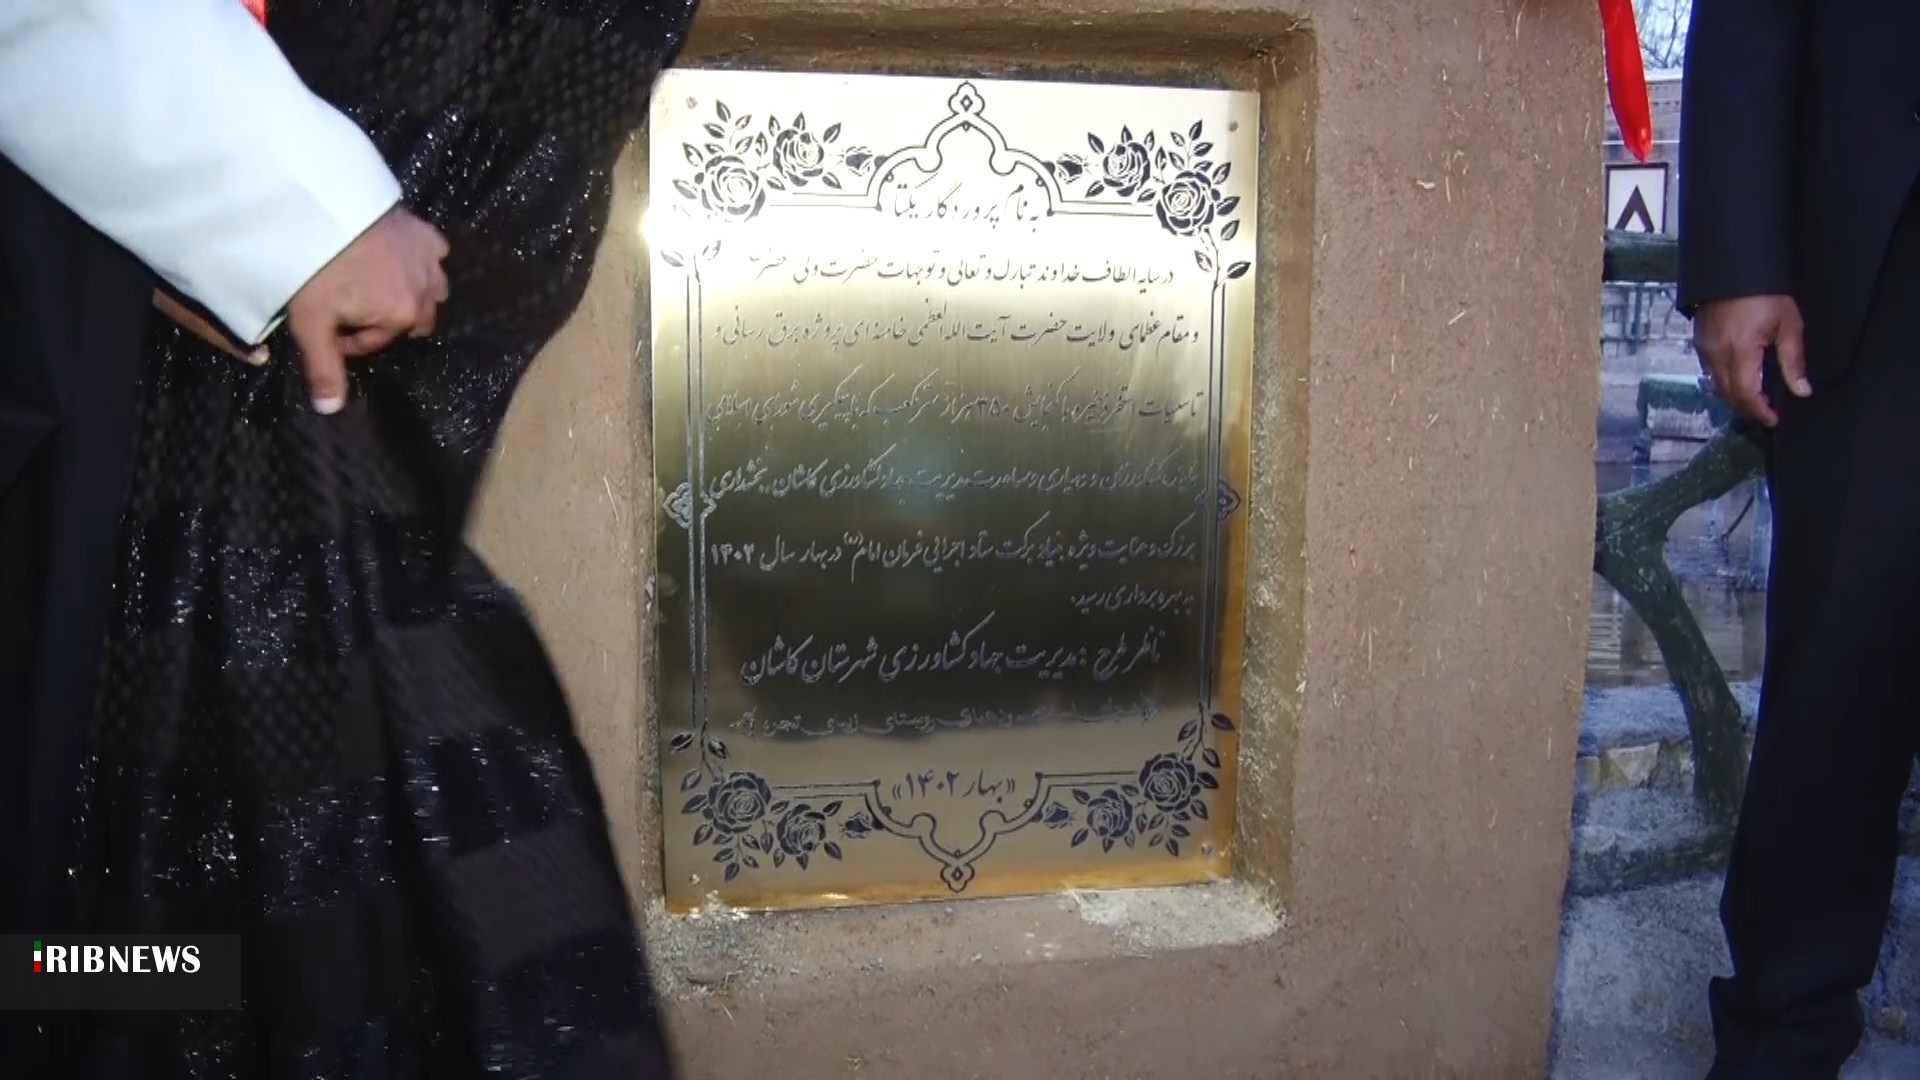 به نام پروردگار یکتا
در سایه الطاف خداوند تبارک و تعالی و توجهات حضرت ولی عصر
و مقام عظمای ولایت حضرت آیت الله العظمی خامنه ای پروژه برق رسانی و
تاسیسات استخر ذخیره با گنجایش ۳۵۰ هزار متر مکعب که با پیگیری شورای اسلامی
کشاورزان و دهیاری و مساعدت مدیریت جهاد کشاورزی کاشان، بخشداری
برزک و عنایت ویژه بنیاد برکت ستاد اجرایی فرمان امام(ره) در بهار سال ۱۴۰۲
به بهره برداری رسید.
ناظر طرح : مدیریت جهاد کشاورزی شهرستان کاشان
و دهیاری روستای زیبای تجره
«بهار ۱۴۰۲»
IRIBNEWS